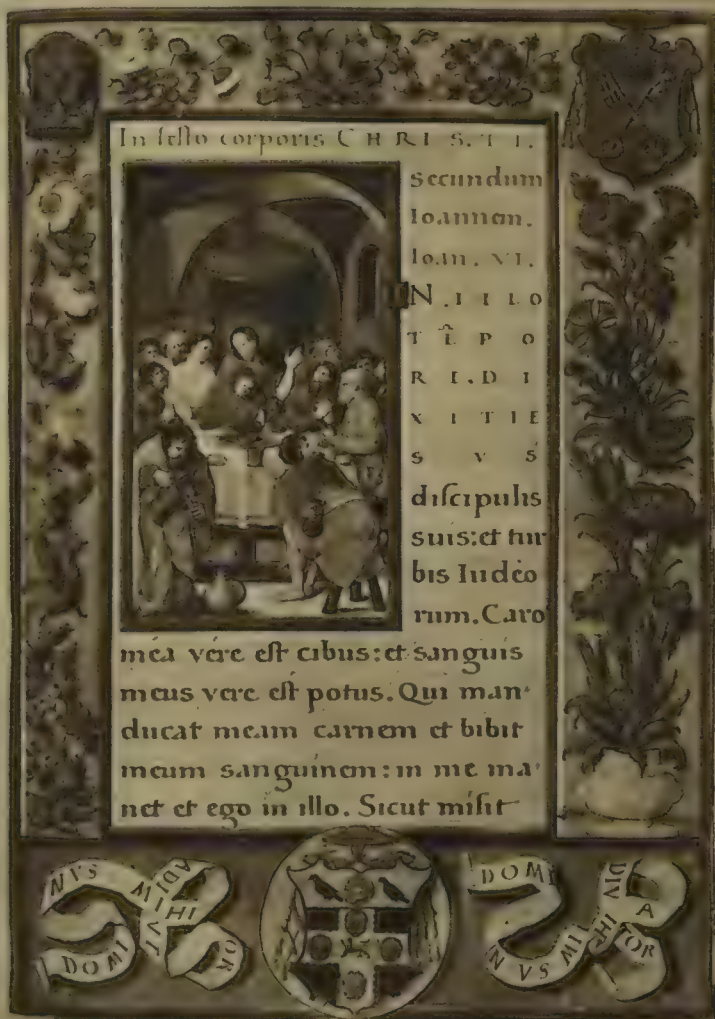 In festo corporis CHRIS.TI.
secundum
Ioannem.
Ioan. VI.
IN.ILLO
TÊPO
RE.DI
XITIE
SVS
discipulis
suis:et tur
bis Iudeo
rum. Caro
mea vere est cibus:et sanguis
meus vere est potus. Qui man-
ducat meam carnem et bibit
meum sanguinem: in me ma-
net et ego in illo. Sicut misit
DOMI NVS MIHI ADIVT OR
DOMI NVS MIHI ADIV TOR